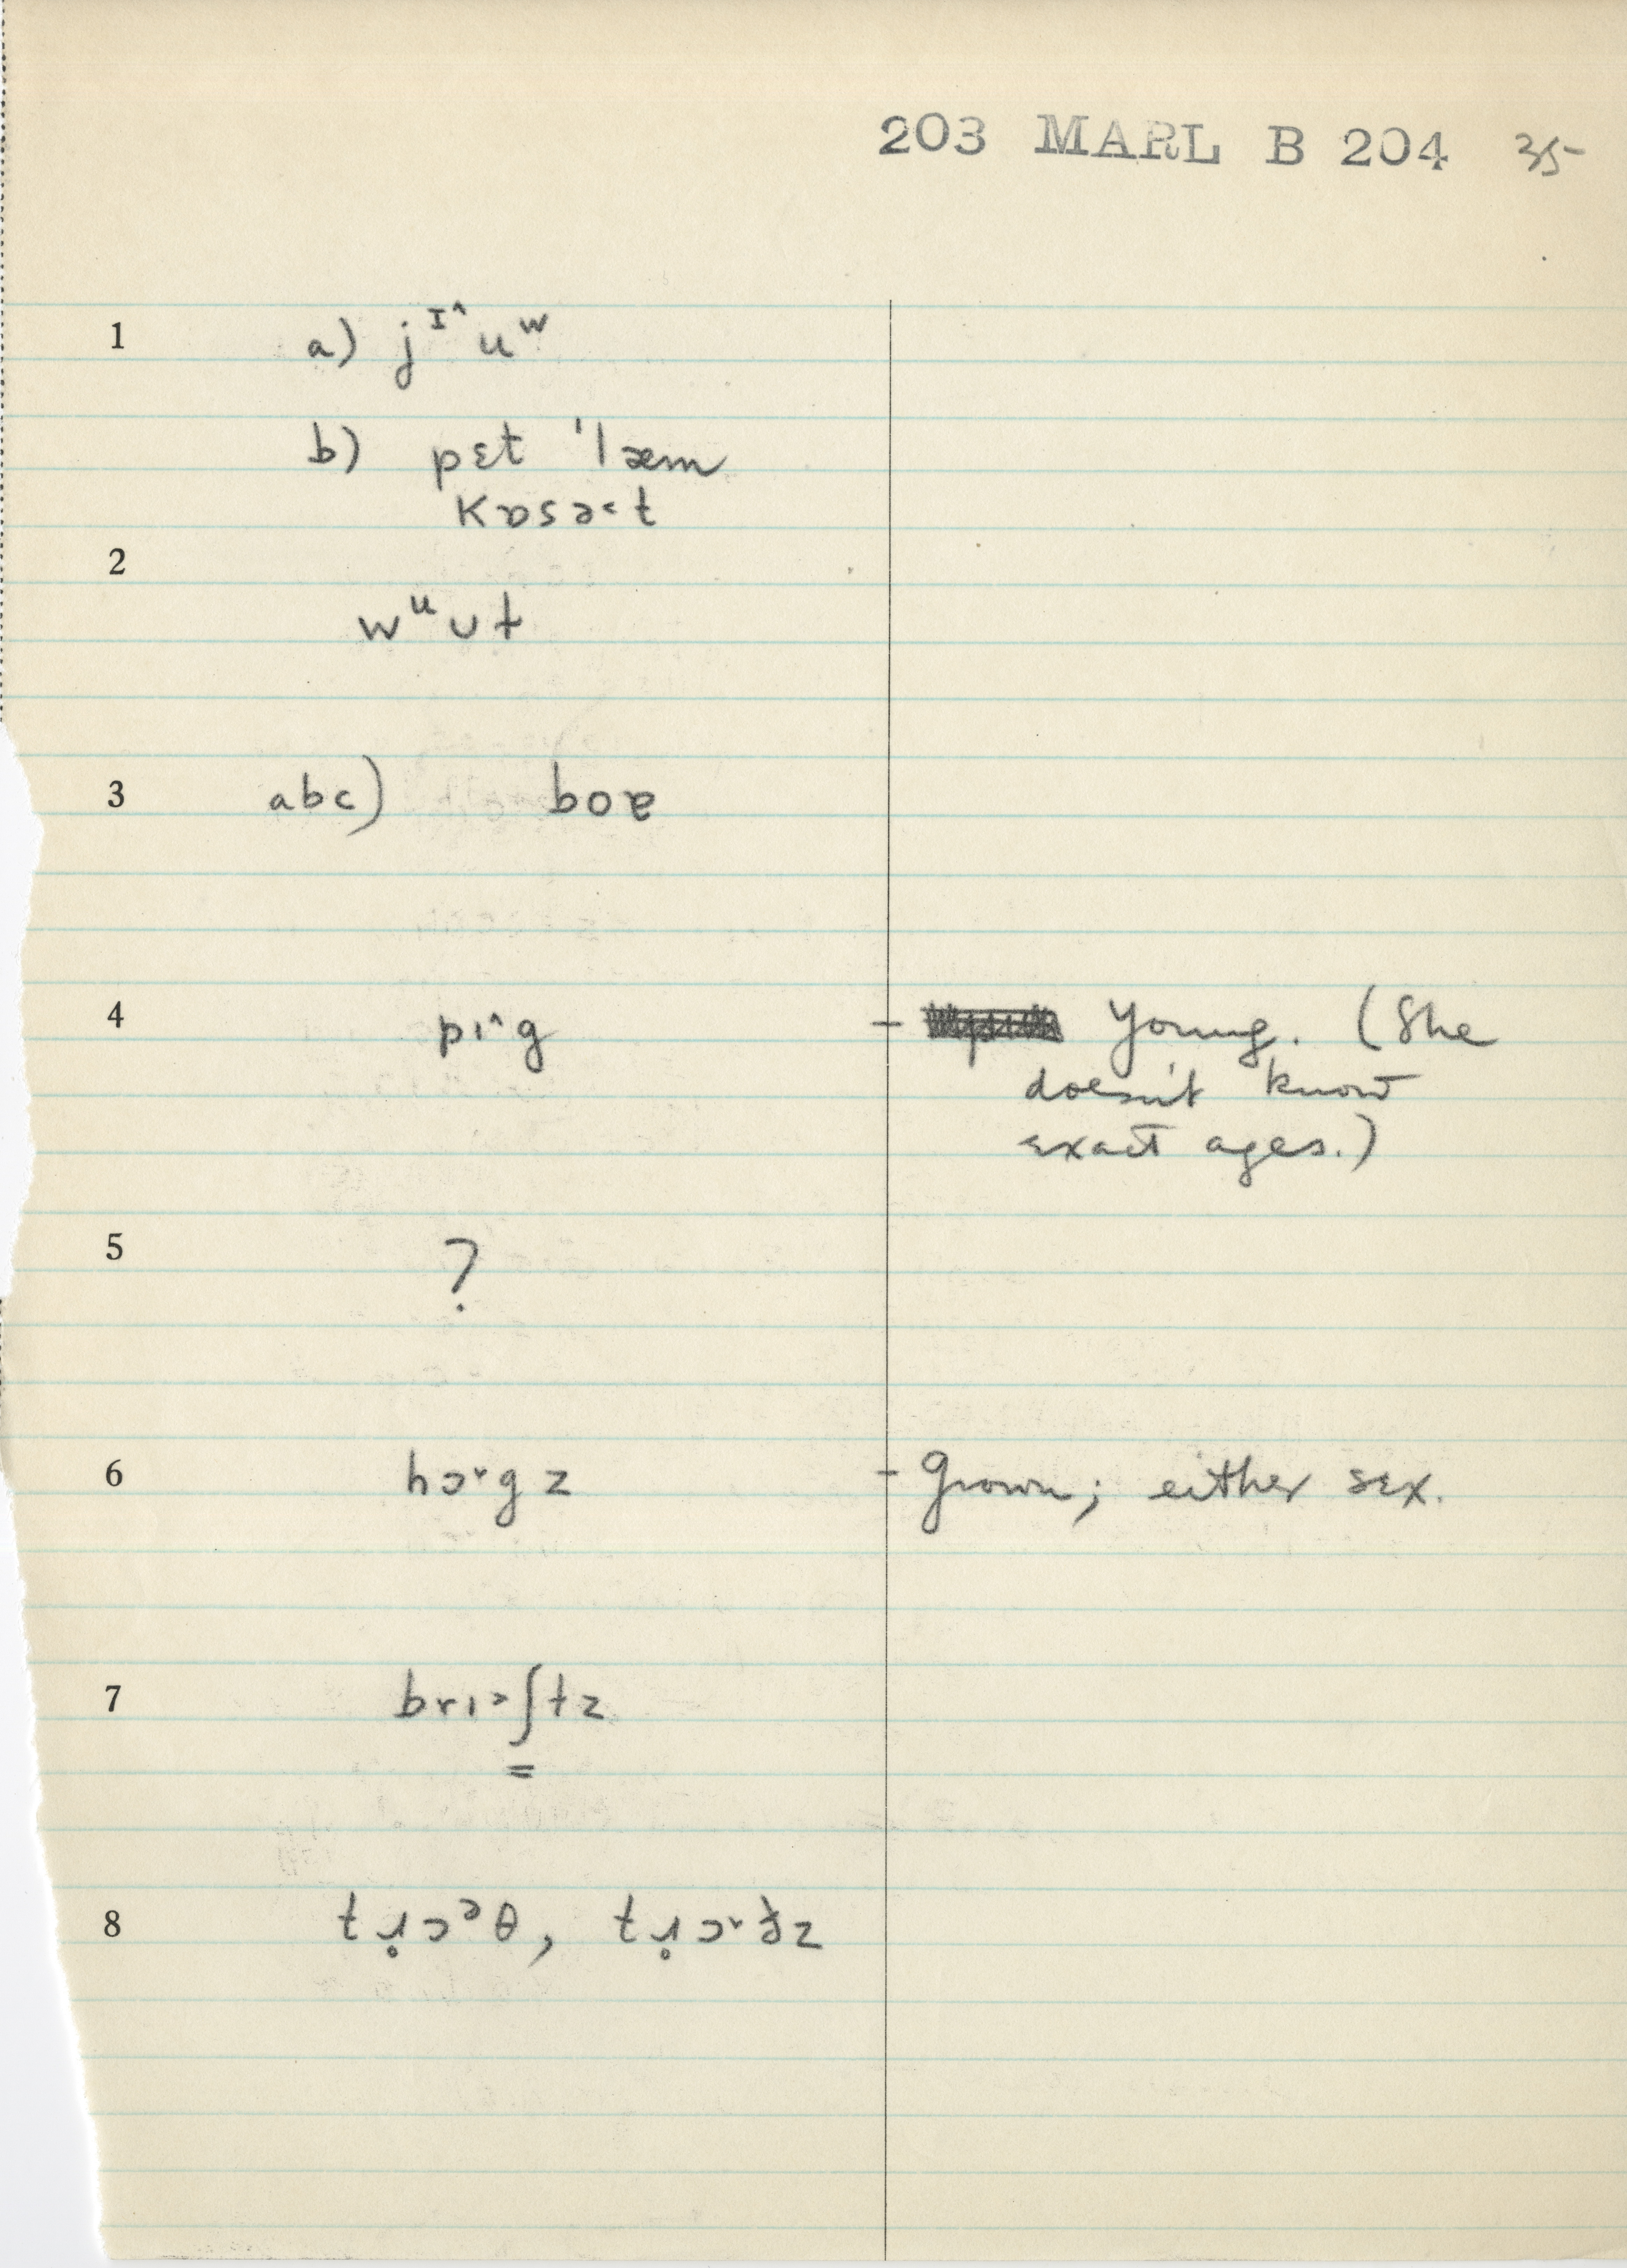 203 MARL B 204 35
1 a) jᴵ^uʷ
b) pɛt 'læm
kɒsə˂t
2
wᵘʊt
3 abc) boɐ
4 pɪ^g - Young. (She
doesn't know
exact ages.)
5 ?
6 hɔ˅gz - Grown; either sex.
7 brɪ˃ʃ͇tz
8 tɹ̥ɔᵊθ, tɹ̥ɔ˅ðz